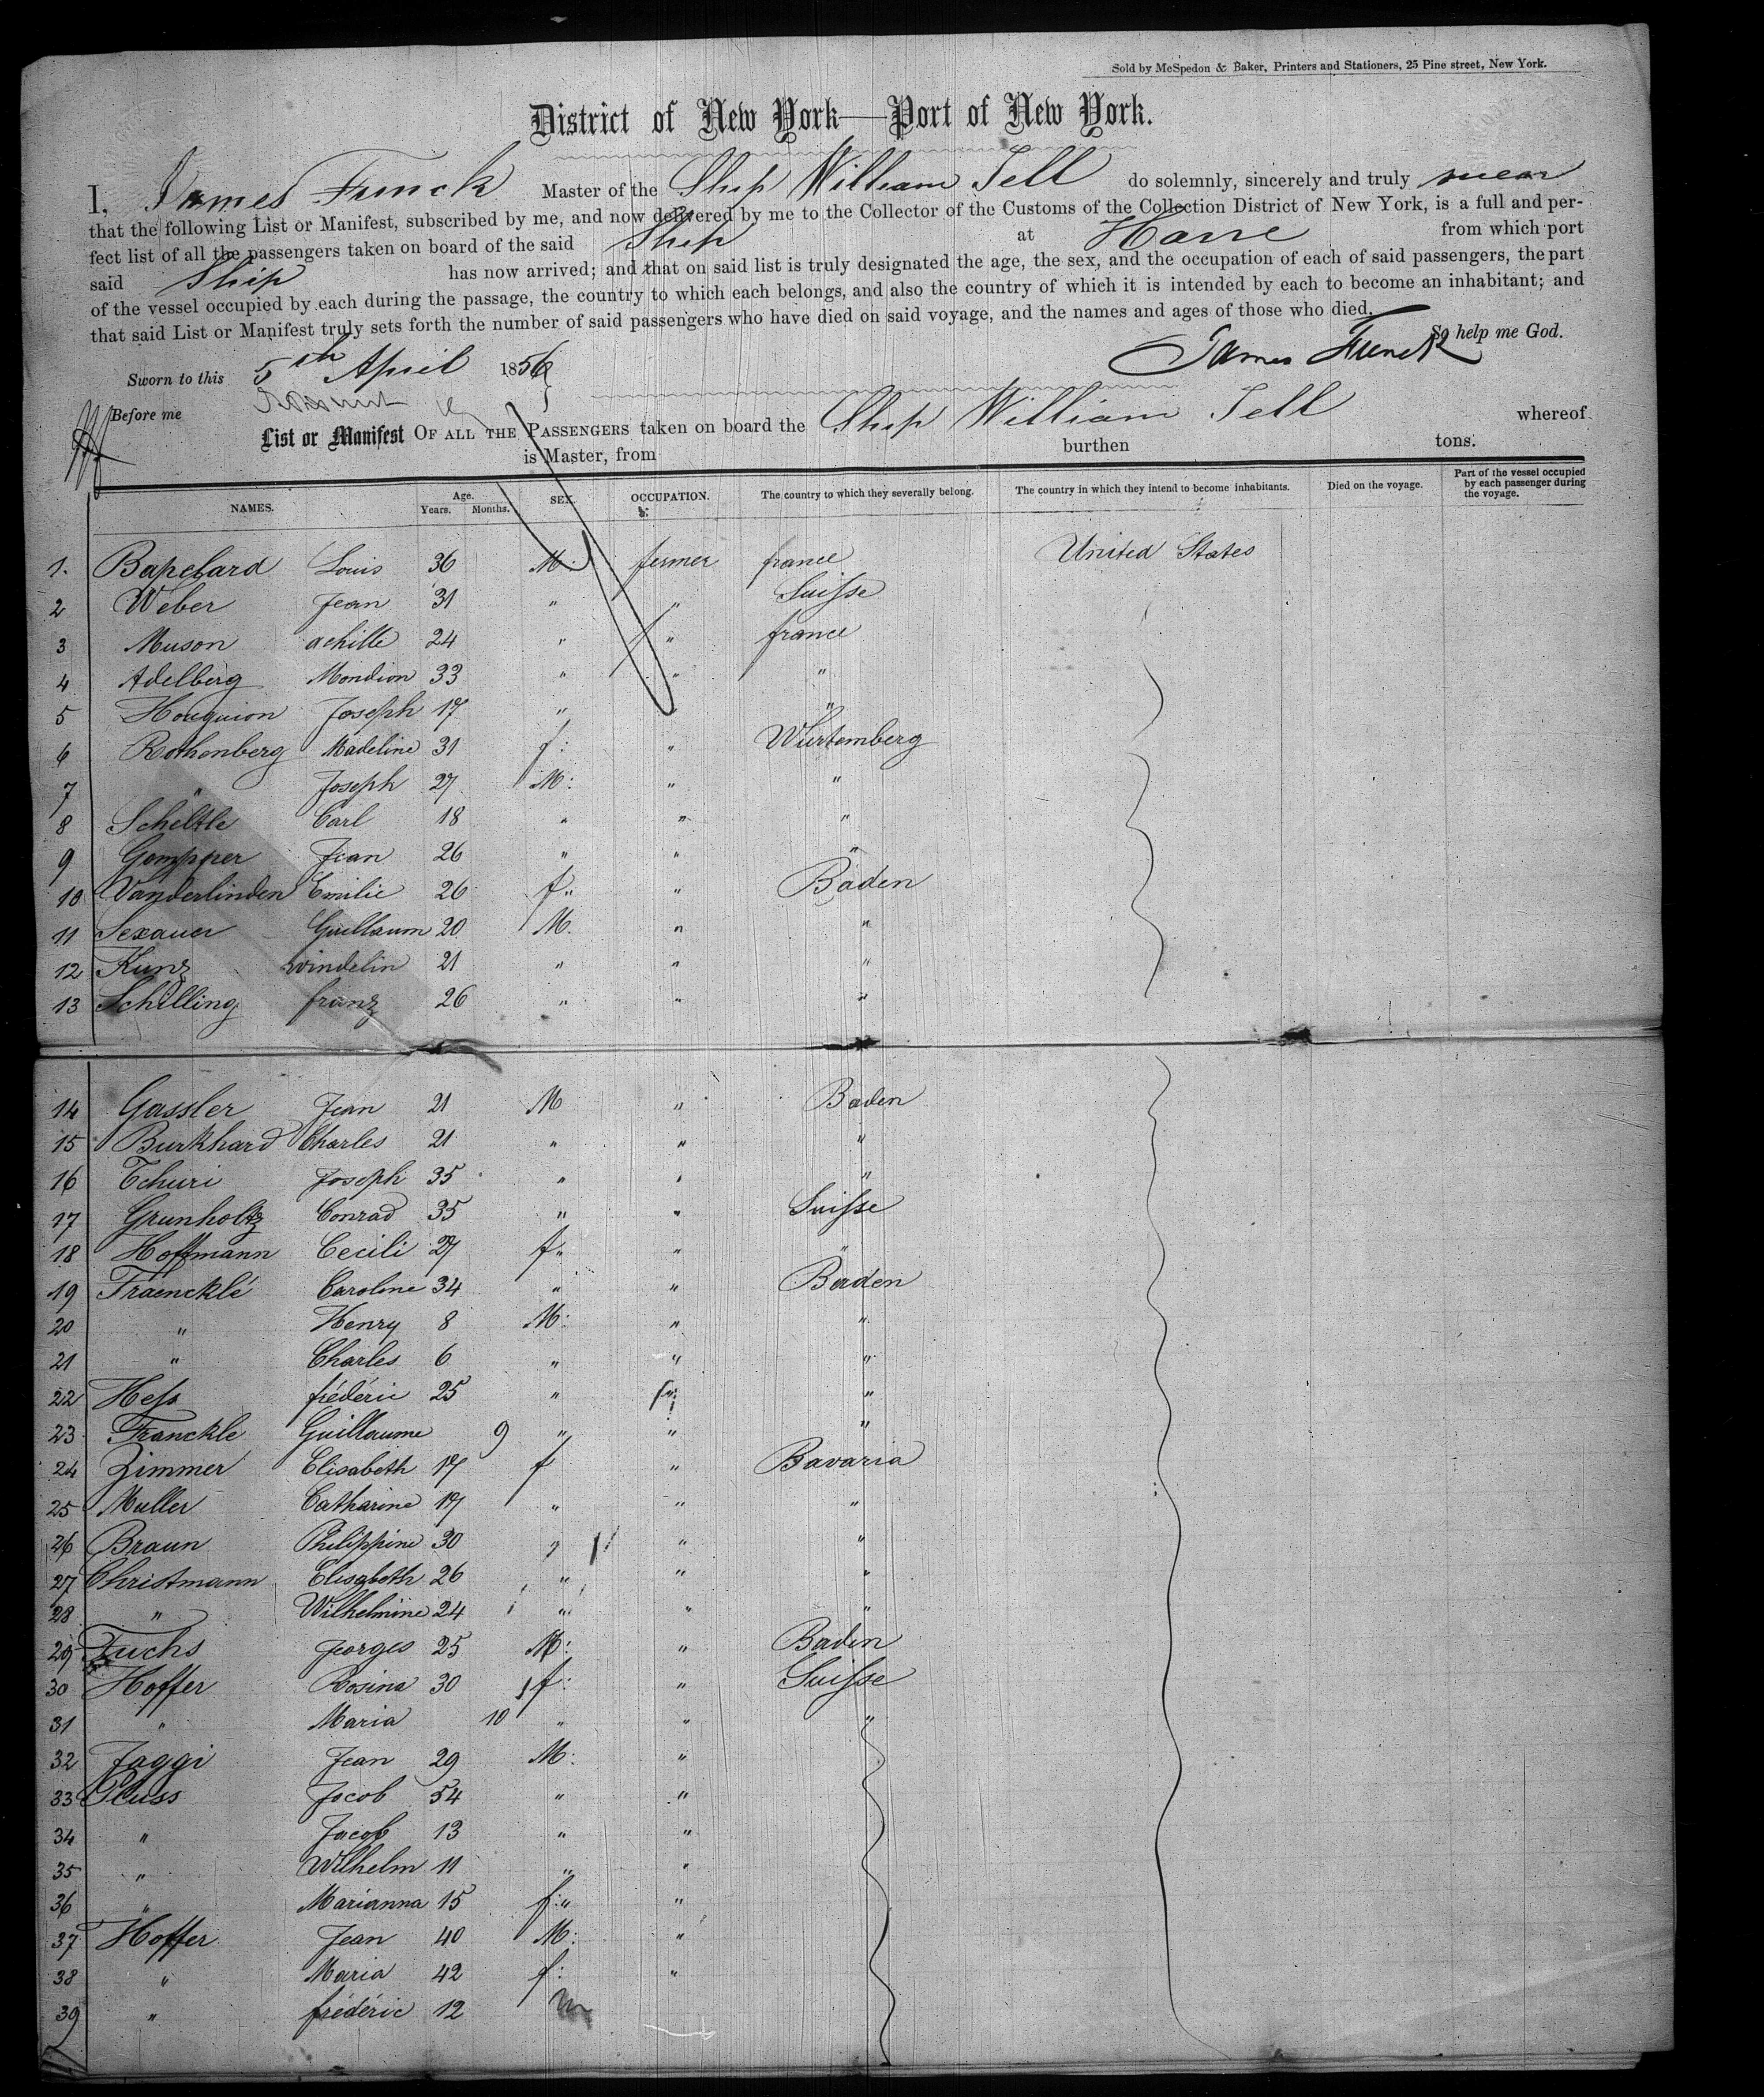 Sold by McSpedon & Baker, Printers and Stationers, 25 Pine street, New York.
District of New York—Port of New York.
I, James Funck Master of the Ship William Tell do solemnly, sincerely and truly swear
that the following List or Manifest, subscribed by me, and now delivered by me to the Collector of the Customs of the Collection District of New York, is a full and per-
fect list of all the passengers taken on board of the said Ship at Havre from which port
said Ship has now arrived; and that on said list is truly designated the age, the sex, and the occupation of each of said passengers, the part
of the vessel occupied by each during the passage, the country to which each belongs, and also the country of which it is intended by each to become an inhabitant; and
that said List or Manifest truly sets forth the number of said passengers who have died on said voyage, and the names and ages of those who died.
So help me God.
Sworn to this 5th April 1856 James Funck
Before me
List or Manifest OF ALL THE PASSENGERS taken on board the Ship William Tell whereof
is Master, from burthen tons.
NAMES. Age. Years. Months. SEX. OCCUPATION. The country to which they severally belong. The country in which they intend to become inhabitants. Died on the voyage. Part of the vessel occupied by each passenger during the voyage.
1. Louis 36 M: fermer france United States
2 Weber Jean 31 " " Suisse
3 Muson achille 24 " " france
4 Adelberg Mondion 33 " " "
5 Houguion Joseph 17 " " "
6 Rothenberg Madeline 31 f: " Wurtemberg
7 " Joseph 27 M: " "
8 Scheltle Carl 18 " " "
9 Gompper Jean 26 " " "
10 Vanderlinden Emilie 26 f" " Baden
11 Sexauer Guillaum 20 M. " "
12 Kunz windelin 21 " " "
13 Schilling franz 26 " " "
14 Gassler Jean 21 M " Baden
15 Burkhard Charles 21 " " "
16 Tchuri Joseph 35 " " "
17 Grunholtz Conrad 35 " " Suisse
18 Hoffmann Cecili 27 f" " "
19 Fraencklé Caroline 34 " " Baden
20 " Henry 8 M: " "
21 " Charles 6 " " "
22 Hess frédéric 25 " " "
23 Franckle Guillaume 9 " " "
24 Zimmer Elisabeth 17 f " Bavaria
25 Muller Catharine 17 " " "
26 Braun Philippine 30 " " "
27 Christmann Elisabeth 26 " " "
28 " Wilhelmine 24 " " "
29 Fuchs Georges 25 M: " Baden
30 Hoffer Rosina 30 f: " Suisse
31 " Maria 10 " " "
32 Jaggi Jean 29 M: "
33 Pluss Jacob 54 " "
34 " Jacob 13 " "
35 " Wilhelm 11 " "
36 " Marianna 15 f:" "
37 Hoffer Jean 40 M: "
38 " Maria 42 f: "
39 " frédéric 12 m